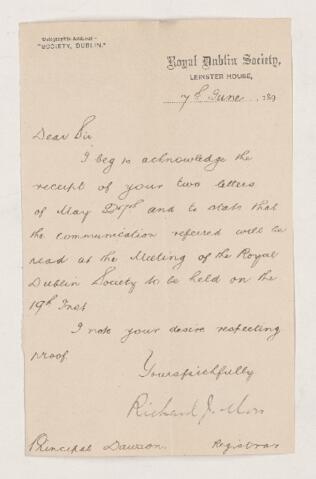 Telegraphic Address -
"SOCIETY, DUBLIN."
Royal Dublin Society,
LEINSTER HOUSE,
7th June, 189
Dear Sir
I beg to acknowledge the
receipt of your two letters
of May 27th and to state that
the communication referred will be
read at the Meeting of the Royal
Dublin Society to be held on the
19th Inst
I note your desire respecting
proof.
Yours faithfully
Richard J. Moss
Principal Dawson. Registrar